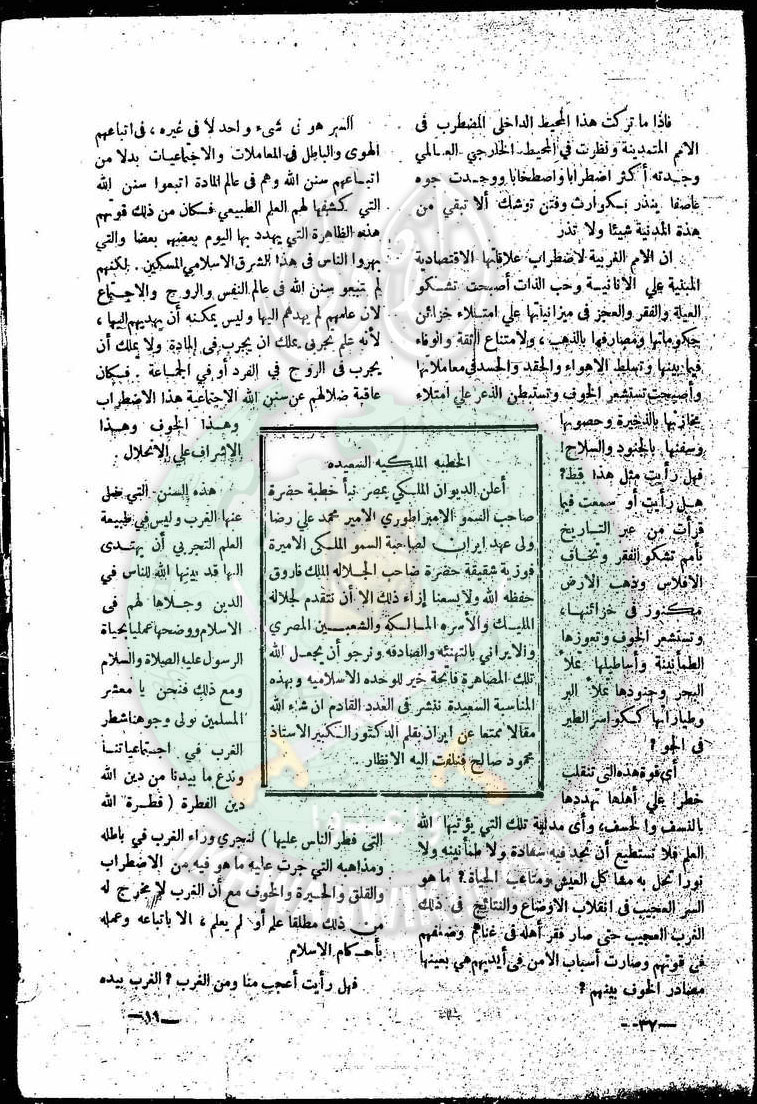 فاذا ما تركت هذا المحيط الداخلي المضطرب فى
الامم المتمدينة ونظرت في المحيط الخارجي العالمي
وجدته أكثر اضطرابا واصطخابا ووجدت جوه
عاصفا ينذر بكوارث وفتن توشك ألا تبقي من
هذه المدنية شيئا ولا تذر
ان الامم الغربية لاضطراب علاقاتها الاقتصادية
المبنية علي الانانية وحب الذات أصبحت تشكو
العيلة والفقر والعجز في ميزانياتها علي امتلاء خزائن
حكوماتها ومصارفها بالذهب ، ولامتناع الثقة والوفاء
فيما بينها وتسلط الاهواء والحقد والحسد فى معاملاتها
وأصبحت تستشعر الخوف وتستبطن الذعر علي امتلاء
مخازنها بالذخيرة وحصونها
وسفنها بالجنود والسلاح !
فهل رأيت مثل هذا قط ؟
هل رأيت أو سمعت فيما
قرأت من عبر التاريخ
بأمم تشكو الفقر وتخاف
الافلاس وذهب الارض
مكنوز فى خزائنها ،
وتستشعر الخوف وتعوزها
الطمأنينة وأساطيلها تملأ
البحر وجنودها تملأ البر
وطياراتها ككواسر الطير
فى الجو ؟
أي قوة هذه التى تنقلب
خطرا علي أهلها تهددها
بالنسف والخسف ، وأى مدنية تلك التي يؤتيها الله
العلم فلا تستطيع أن تجد فيه سعادة ولا طمأنينة ولا
نورا تحل به مشاكل العيش ومتاعب الحياة ؟ ما هو
السر العجيب فى انقلاب الاوضاع والنتائج فى ذلك
الغرب العجيب حتى صار فقر أهله فى غناهم وضعفهم
فى قوتهم وصارت أسباب الامن فى أيديهم هي بعينها
مصادر الخوف بينهم ؟
السر هو فى شىء واحد لا فى غيره ، فى اتباعهم
الهوى والباطل فى المعاملات والاجتماعيات بدلا من
اتباعهم سنن الله وهم فى عالم المادة اتبعوا سنن الله
التي كشفها لهم العلم الطبيعي فكان من ذلك قوتهم
هذه الظاهرة التي يهدد بها اليوم بعضهم بعضا والتي
بهروا الناس فى هذا الشرق الاسلامي المسكين . لكنهم
لم يتبعو سنن الله فى عالم النفس والروح والاجتماع
لان علمهم لم يهدهم اليها وليس يمكنه أن يهديهم اليها ،
لأنه علم تجربى يملك ان يجرب فى المادة ولا يملك أن
يجرب فى الروح في الفرد أو في الجماعة . فكان
عاقبة ضلالهم عن سنن الله الاجتماعية هذا الاضطراب
وهذا الخوف وهذا
الاشراف علي الانحلال .
هذه السنن التي ضل
عنها الغرب وليس في طبيعة
العلم التجربي أن يهتدى
اليها قد بينها الله للناس في
الدين وجلاها لهم فى
الاسلام ووضحها عمليا بحياة
الرسول عليه الصلاة والسلام
ومع ذلك فنحن يا معشر
المسلمين نولى وجوهنا شطر
الغرب في اجتماعياتنا
وندع ما بيدنا من دين الله
دين الفطرة ( فطرة الله
التى فطر الناس عليها ) لنجري وراء الغرب في باطله
ومذاهبه التي جرت عليه ما هو فيه من الاضطراب
والقلق والحيرة والخوف مع أن الغرب لا مخرج له
من ذلك مطلقا علم أو لم يعلم ، الا باتباعه وعمله
بأحكام الاسلام
فهل رأيت أعجب منا ومن الغرب ؟ الغرب بيده
الخطبه الملكيه السعيده
أعلن الديوان الملكي بمصر نبأ خطبة حضرة
صاحب السمو الامبراطوري الامير محمد علي رضا
ولى عهد ايران لصاحبة السمو الملكى الاميرة
فوزية شقيقة حضرة صاحب الجلاله الملك فاروق
حفظه الله ولا يسعنا إزاء ذلك الا أن نتقدم لجلالة
المليك والأسره المالكه والشعبين المصري
والايراني بالتهنئه والصادقه ونرجو أن يجعل الله
تلك المصاهرة فاتحة خير للوحده الاسلاميه وبهذه
المناسبة السعيدة ننشر فى العدد القادم ان شاء الله
مقالا ممتعا عن ايران بقلم الدكتور الكبير الاستاذ
محمود صالح فنلفت اليه الانظار .
—٣٧—
—١٩—
واعدوا